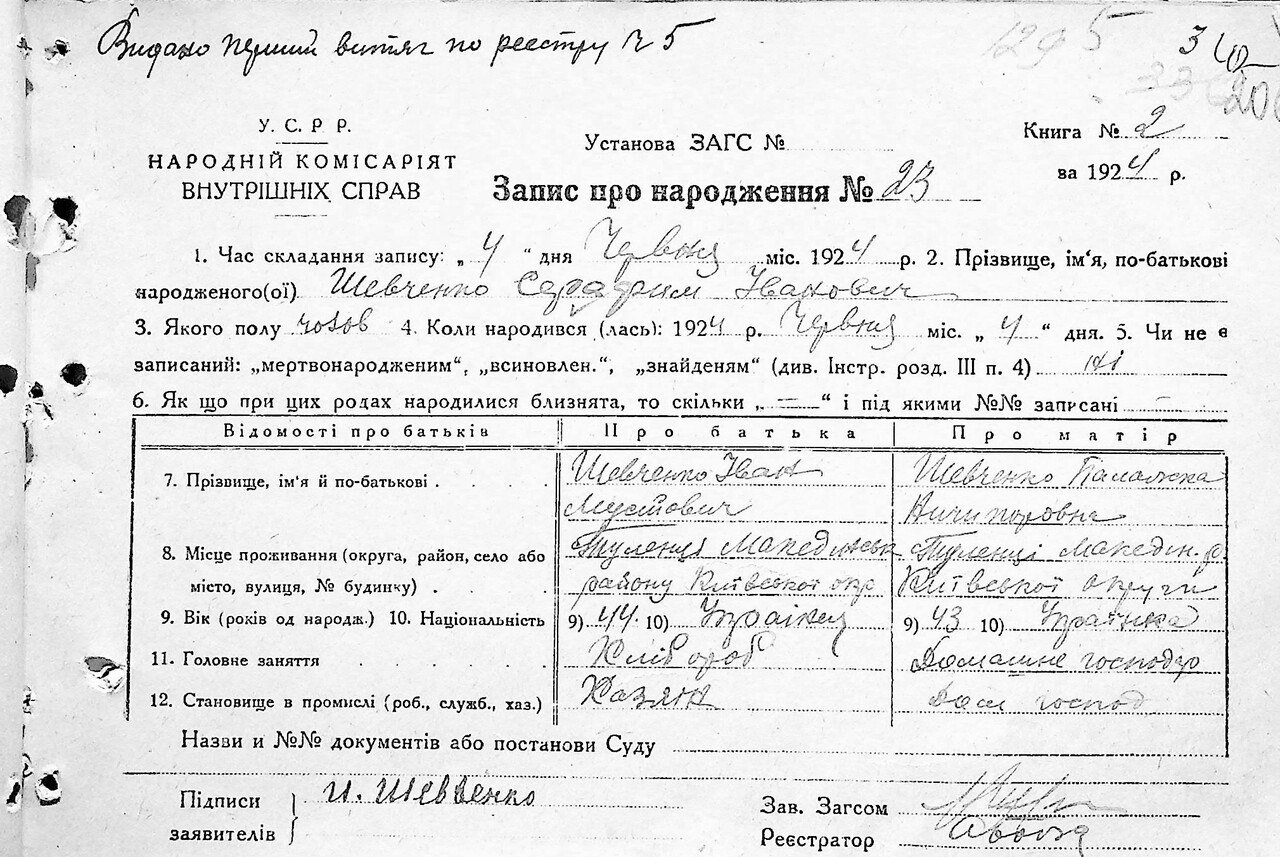 Видано перший витяг по реєстру № 5
1295
340
У. С. Р Р.
НАРОДНІЙ КОМІСАРІЯТ
ВНУТРІШНІХ СПРАВ
Установа ЗАГС №
Книга № 2
за 1924 р.
Запис про народження № 23
1. Час складання запису: „ 4 “ дня Червня міс. 1924 р. 2. Прізвище, ім‘я, по-батькові
народженого(ої) Шевченко Серафим Іванович
3. Якого полу чолов 4. Коли народився (лась): 1924 р. Червня міс. „ 4 “ дня. 5. Чи не є
записаний: „мертвонародженим“, „всиновлен.“, „знайденям“ (див. Інстр. розд. III п. 4) ні
6. Як що при цих родах народилися близнята, то скільки „ — “ і під якими №№ записані —
Відомості про батьків Про батька Про матір
7. Прізвище, ім‘я й по-батькові Шевченко Іван Шевченко
Мустович Ничипоровна
8. Місце проживання (округа, район, село або Туленці Македонськ Туленці Македон. р
місто, вулиця, № будинку) району Київської окр Київської округи
9. Вік (років од народж.) 10. Національність 9) 44 10) Україн 9) 43 10) Українка
11. Головне заняття Хлібороб Домашнє господар
12. Становище в промислі (роб., служб., хаз.) Хазяін Дом господ
Назви и №№ документів або постанови Суду
Підписи И. Шевченко
заявителів
Зав. Загсом
Реєстратор